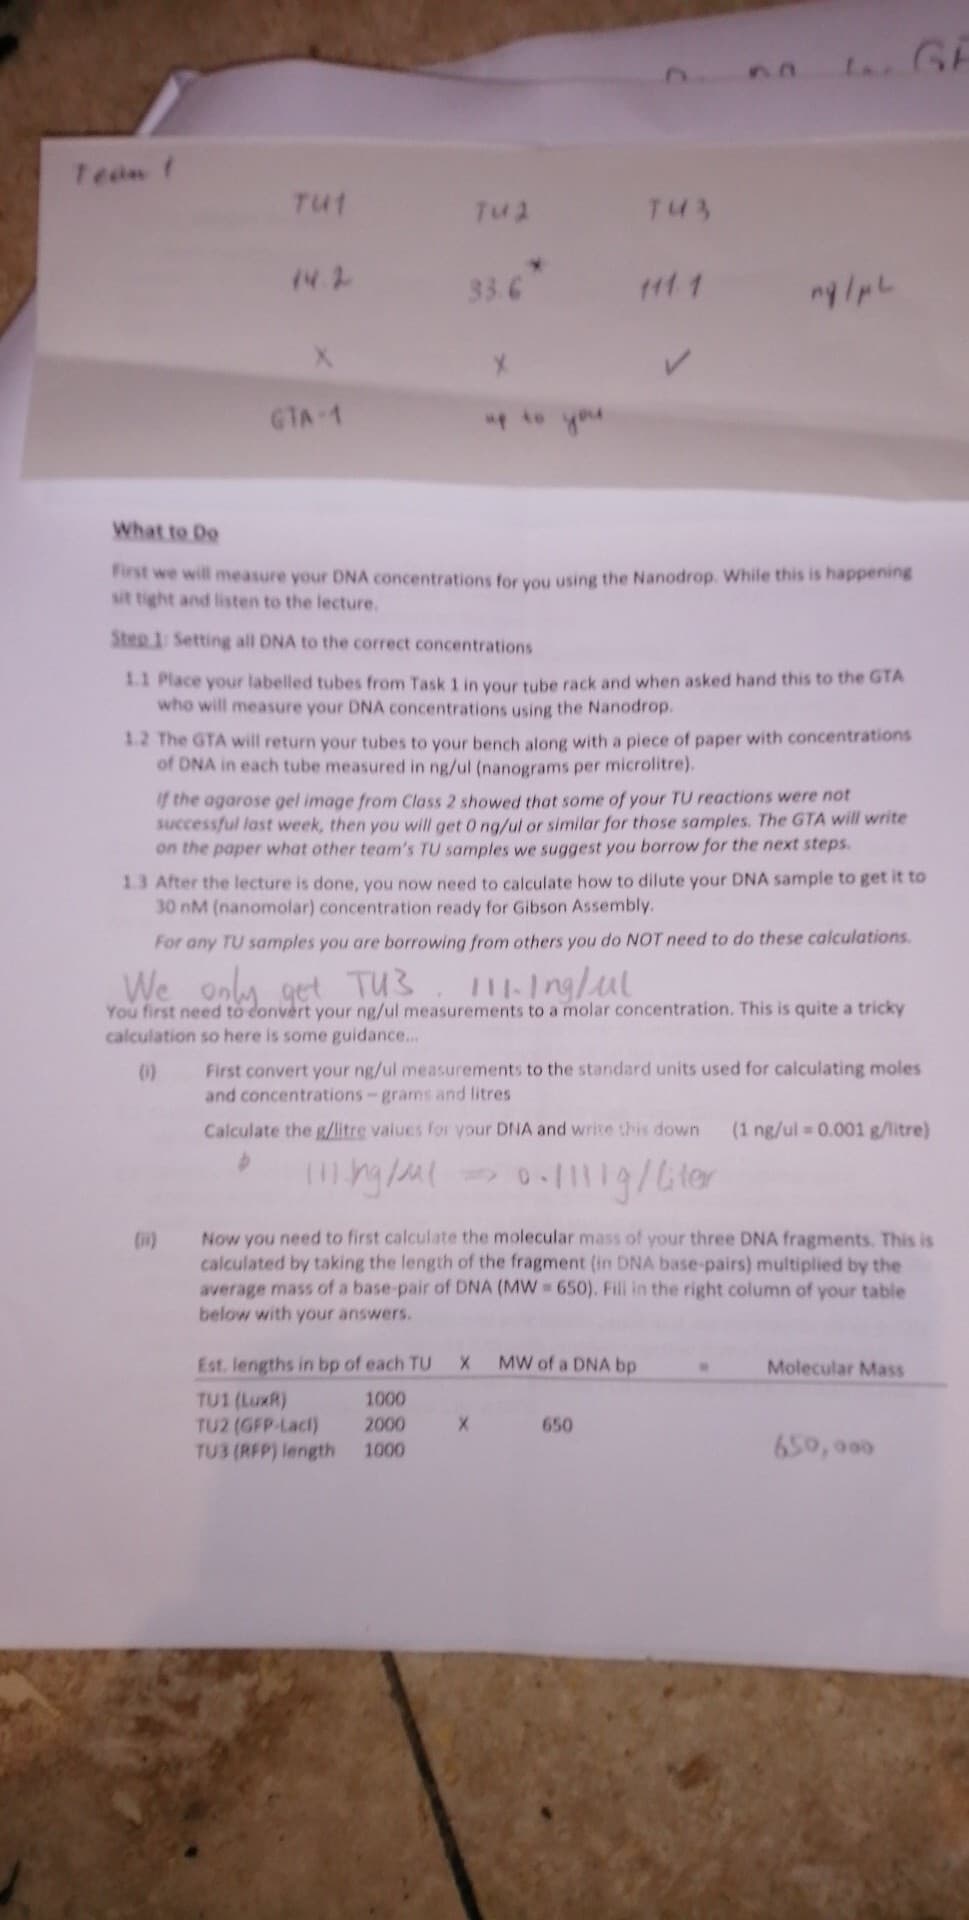 Team 1
TU1 TU2 TU3
14.2 33.6* 111.1 ng/µL
X X ✓
GTA-1 up to you
What to Do
First we will measure your DNA concentrations for you using the Nanodrop. While this is happening
sit tight and listen to the lecture.
Step 1: Setting all DNA to the correct concentrations
1.1 Place your labelled tubes from Task 1 in your tube rack and when asked hand this to the GTA
who will measure your DNA concentrations using the Nanodrop.
1.2 The GTA will return your tubes to your bench along with a piece of paper with concentrations
of DNA in each tube measured in ng/ul (nanograms per microlitre).
If the agarose gel image from Class 2 showed that some of your TU reactions were not
successful last week, then you will get 0 ng/ul or similar for those samples. The GTA will write
on the paper what other team's TU samples we suggest you borrow for the next steps.
1.3 After the lecture is done, you now need to calculate how to dilute your DNA sample to get it to
30 nM (nanomolar) concentration ready for Gibson Assembly.
For any TU samples you are borrowing from others you do NOT need to do these calculations.
We only get TU3. 111.1ng/ul
You first need to convert your ng/ul measurements to a molar concentration. This is quite a tricky
calculation so here is some guidance...
(i) First convert your ng/ul measurements to the standard units used for calculating moles
and concentrations – grams and litres
Calculate the g/litre values for your DNA and write this down (1 ng/ul = 0.001 g/litre)
=> 0.1111g/liter
(ii) Now you need to first calculate the molecular mass of your three DNA fragments. This is
calculated by taking the length of the fragment (in DNA base-pairs) multiplied by the
average mass of a base-pair of DNA (MW = 650). Fill in the right column of your table
below with your answers.
Est. lengths in bp of each TU X MW of a DNA bp = Molecular Mass
TU1 (LuxR) 1000
TU2 (GFP-LacI) 2000 X 650
TU3 (RFP) length 1000 650,000